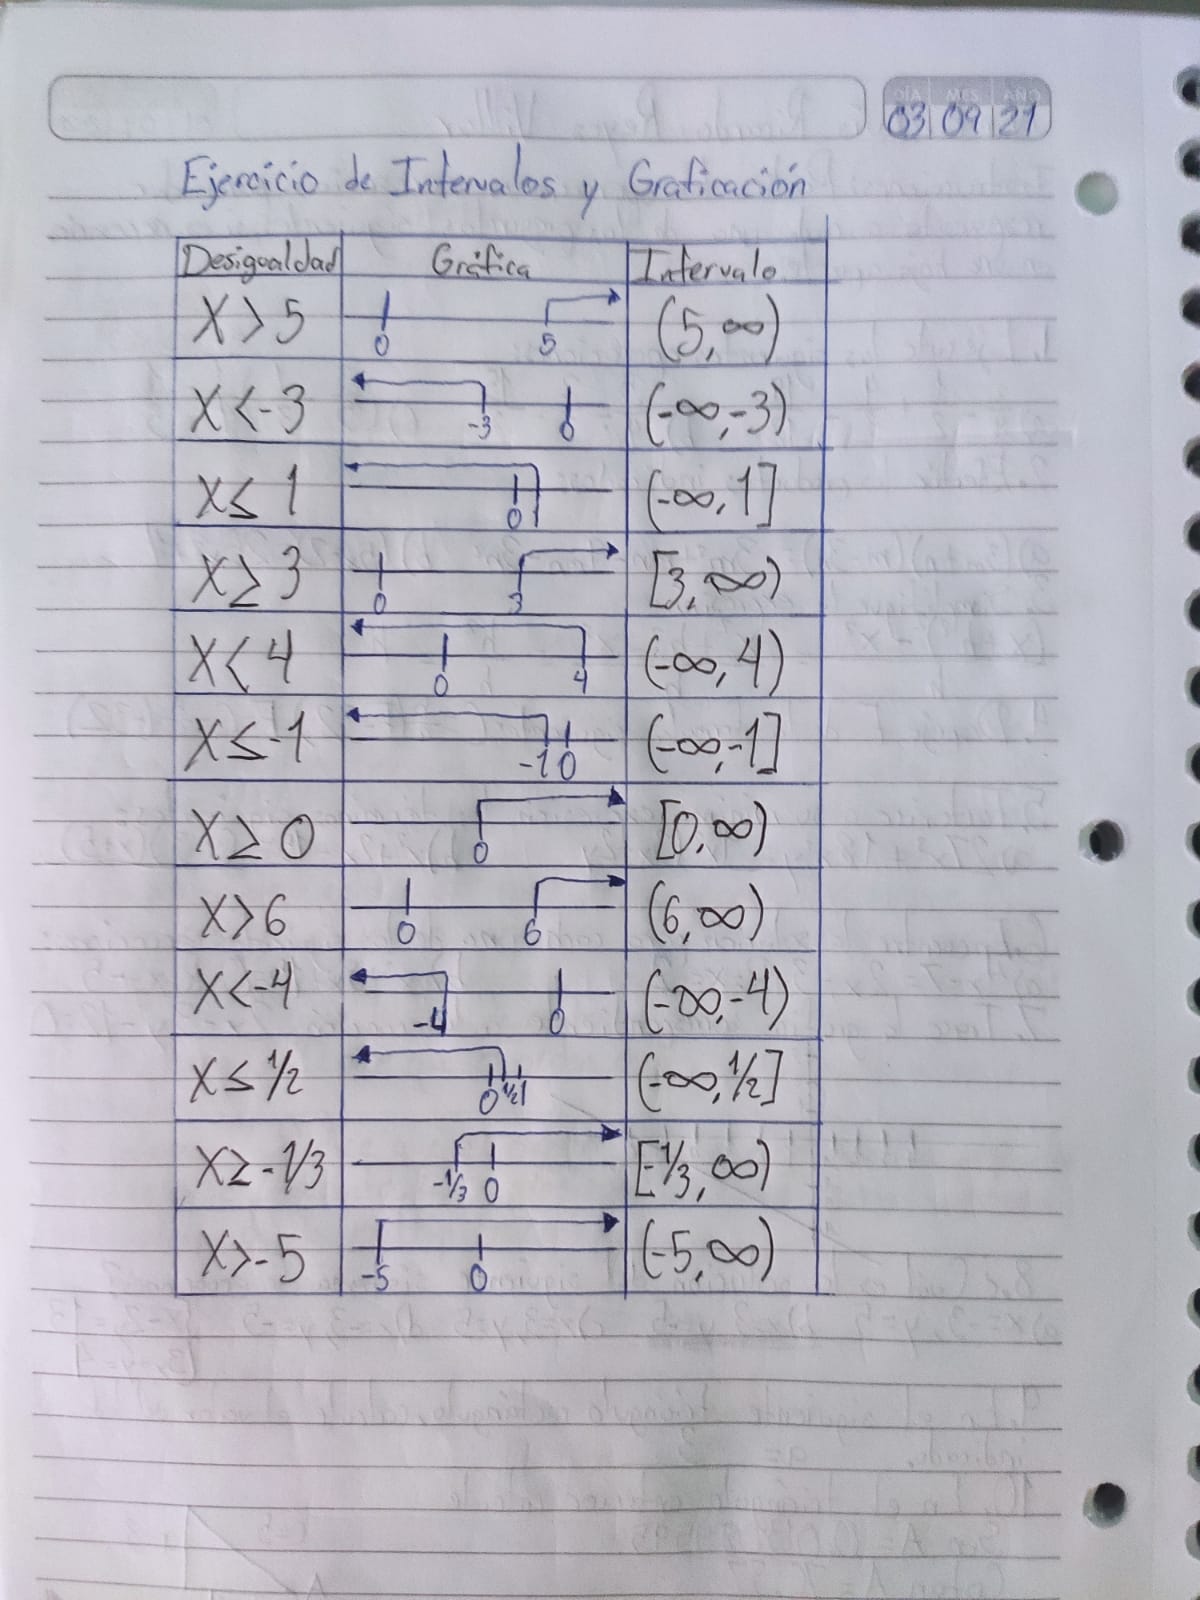 DÍA MES AÑO
03 09 21
Ejercicio de Intervalos y Graficación
Desigualdad Gráfica Intervalo
X > 5 0 5 (5, ∞)
X < -3 -3 0 (-∞, -3)
X ≤ 1 0 1 (-∞, 1]
X ≥ 3 0 3 [3, ∞)
X < 4 0 4 (-∞, 4)
X ≤ -1 -1 0 (-∞, -1]
X ≥ 0 0 [0, ∞)
X > 6 0 6 (6, ∞)
X < -4 -4 0 (-∞, -4)
X ≤ 1/2 0 1/2 1 (-∞, 1/2]
X ≥ -1/3 -1/3 0 [-1/3, ∞)
X > -5 -5 0 (-5, ∞)